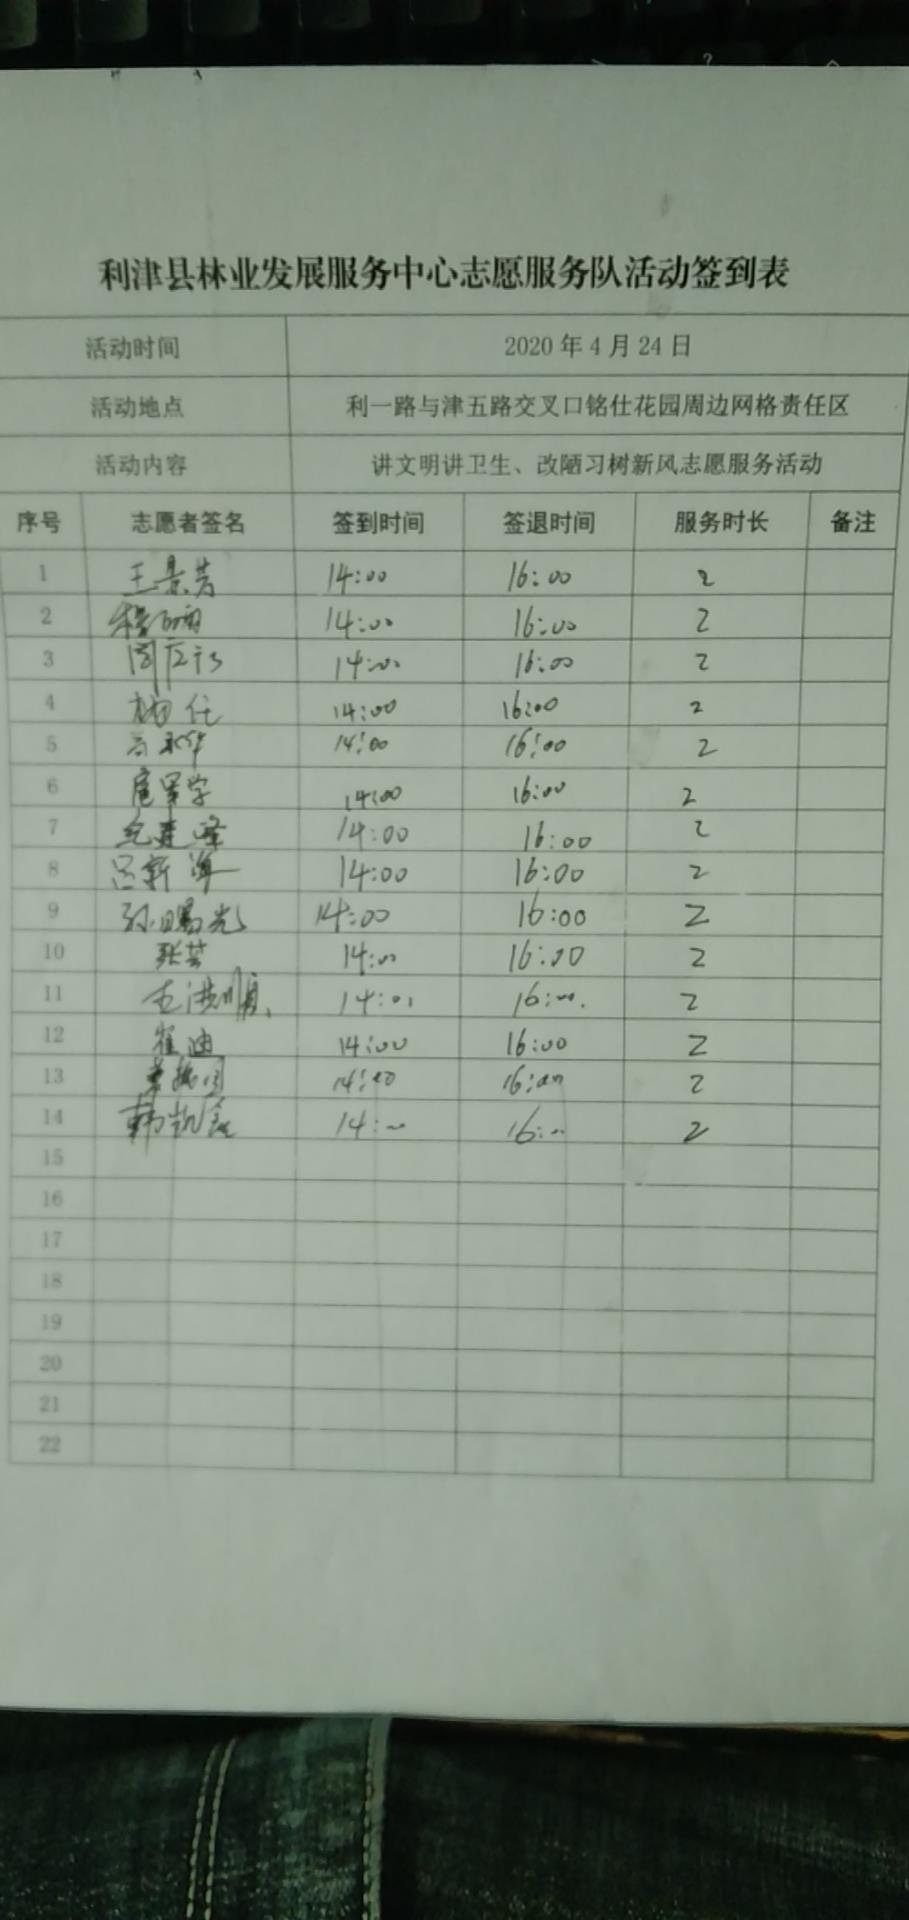 利津县林业发展服务中心志愿服务队活动签到表
活动时间 2020年4月24日
活动地点 利一路与津五路交叉口铭仕花园周边网格责任区
活动内容 讲文明讲卫生、改陋习树新风志愿服务活动
序号 志愿者签名 签到时间 签退时间 服务时长 备注
1 王景芳 14:00 16:00 2
2 14:00 16:00 2
3 14:00 16:00 2
4 14:00 16:00 2
5 14:00 16:00 2
6 14:00 16:00 2
7 纪建峰 14:00 16:00 2
8 吕新海 14:00 16:00 2
9 孙曙光 14:00 16:00 2
10 张芸 14:00 16:00 2
11 14:00 16:00 2
12 崔迪 14:00 16:00 2
13 14:00 16:00 2
14 14:00 16:00 2
15
16
17
18
19
20
21
22